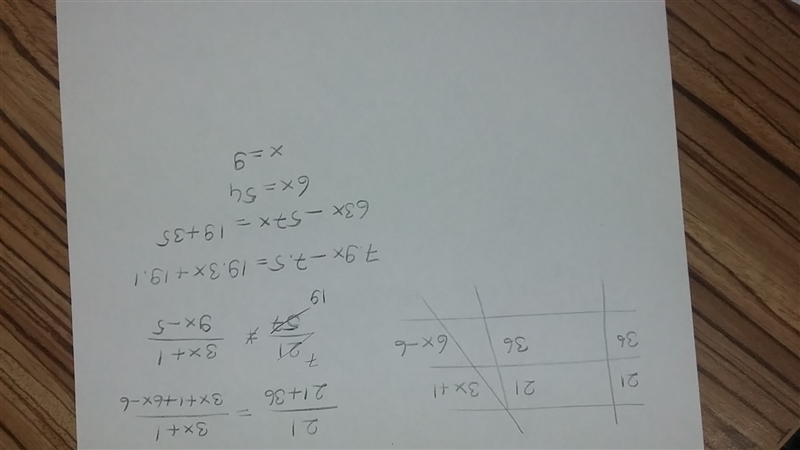 21 21 3x+1
36 36 6x-6
21/21+36 = 3x+1/3x+1+6x-6
7 21/57 19 ≠ 3x+1/9x-5
7.9x-7.5=19.3x+19.1
63x-57x=19+35
6x=54
x=9